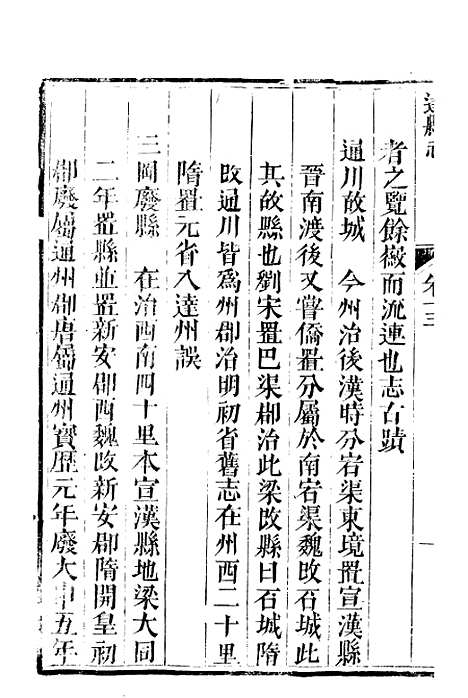 達縣志
卷十三
一
者之覽餘檄而流連也志古蹟
通川故城　今州治後漢時分宕渠東境置宣漢縣
晉南渡後又嘗僑置分屬於南宕渠魏改石城此
其故縣也劉宋置巴渠郡治此梁改縣曰石城隋
改通川皆爲州郡治明初省舊志在州西二十里
隋置元省入達州誤
三岡廢縣　在治西南四十里本宣漢縣地梁大同
二年置縣並置新安郡西魏改新安郡隋開皇初
郡廢屬通州郡唐屬通州寶歷元年廢大中五年